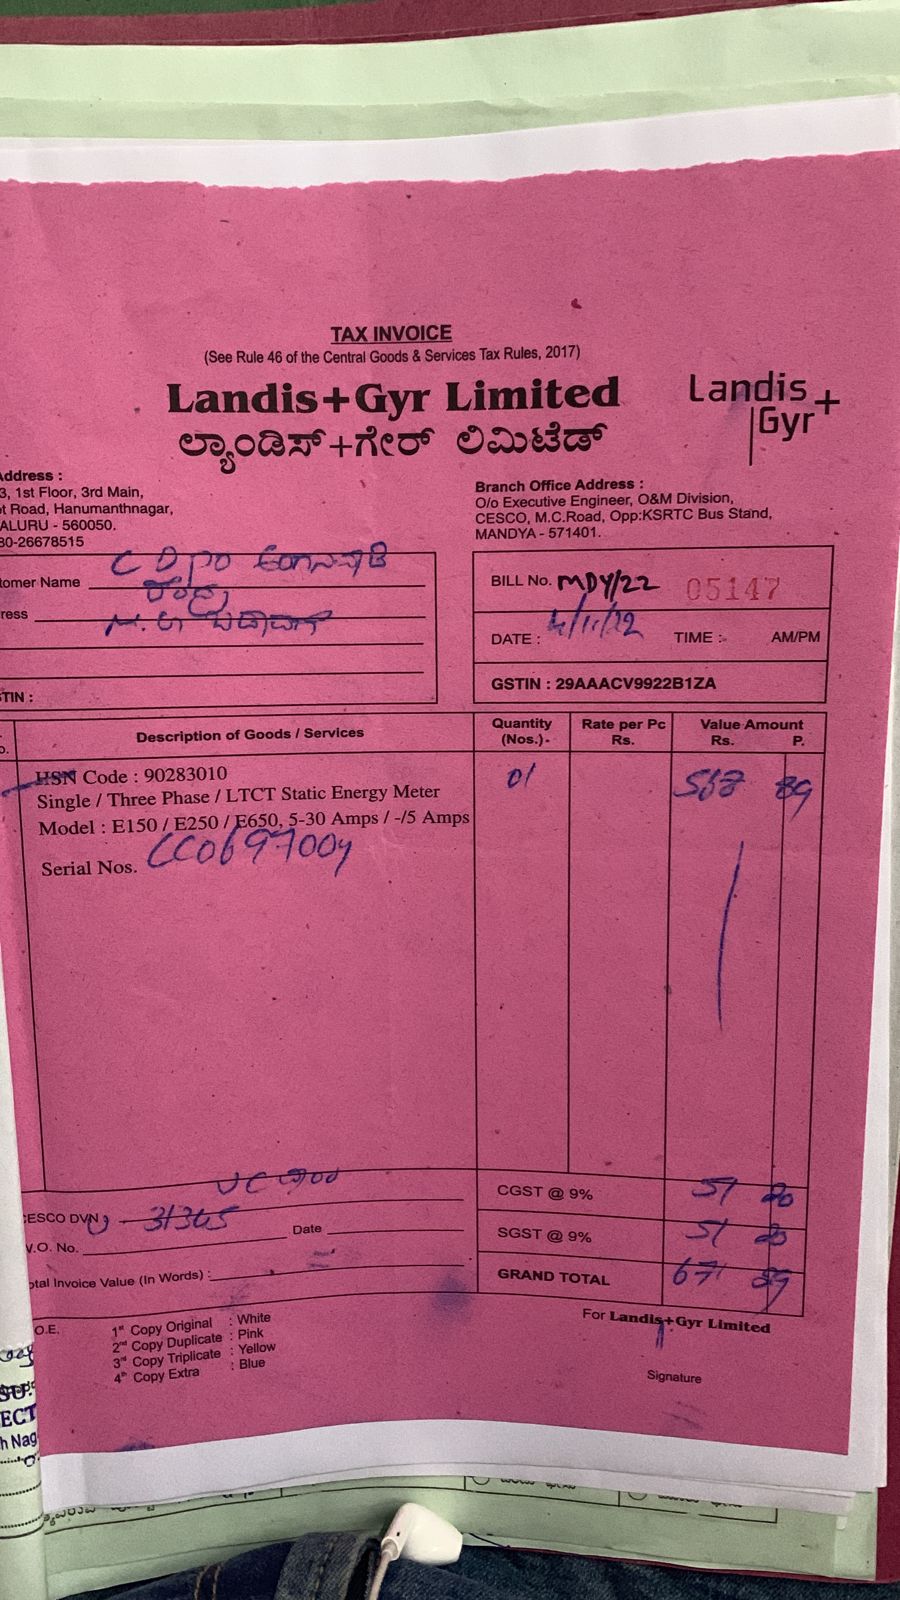 TAX INVOICE
(See Rule 46 of the Central Goods & Services Tax Rules, 2017)
Landis+Gyr Limited
ಲ್ಯಾಂಡಿಸ್+ಗೇರ್ ಲಿಮಿಟೆಡ್
Landis+
Gyr
Address :
3, 1st Floor, 3rd Main,
t Road, Hanumanthnagar,
ALURU - 560050.
80-26678515
Branch Office Address :
O/o Executive Engineer, O&M Division,
CESCO, M.C.Road, Opp:KSRTC Bus Stand,
MANDYA - 571401.
tomer Name CDPO ಅಂಗನವಾಡಿ
ress ಕೇಂದ್ರ
TIN :
BILL No. MDY/22 05147
DATE : 4/11/22 TIME :- AM/PM
GSTIN : 29AAACV9922B1ZA
Description of Goods / Services
Quantity (Nos.)-
Rate per Pc Rs.
Value Amount Rs. P.
HSN Code : 90283010
Single / Three Phase / LTCT Static Energy Meter
Model : E150 / E250 / E650, 5-30 Amps / -/5 Amps
Serial Nos. CC0697004
01
568 89
CGST @ 9% 51 20
SGST @ 9% 51 20
GRAND TOTAL 671 29
CESCO DVN 31345
V.O. No. Date
otal Invoice Value (In Words) :
O.E.
1st Copy Original : White
2nd Copy Duplicate : Pink
3rd Copy Triplicate : Yellow
4th Copy Extra : Blue
For Landis+Gyr Limited
Signature
SU
ECT
h Nag